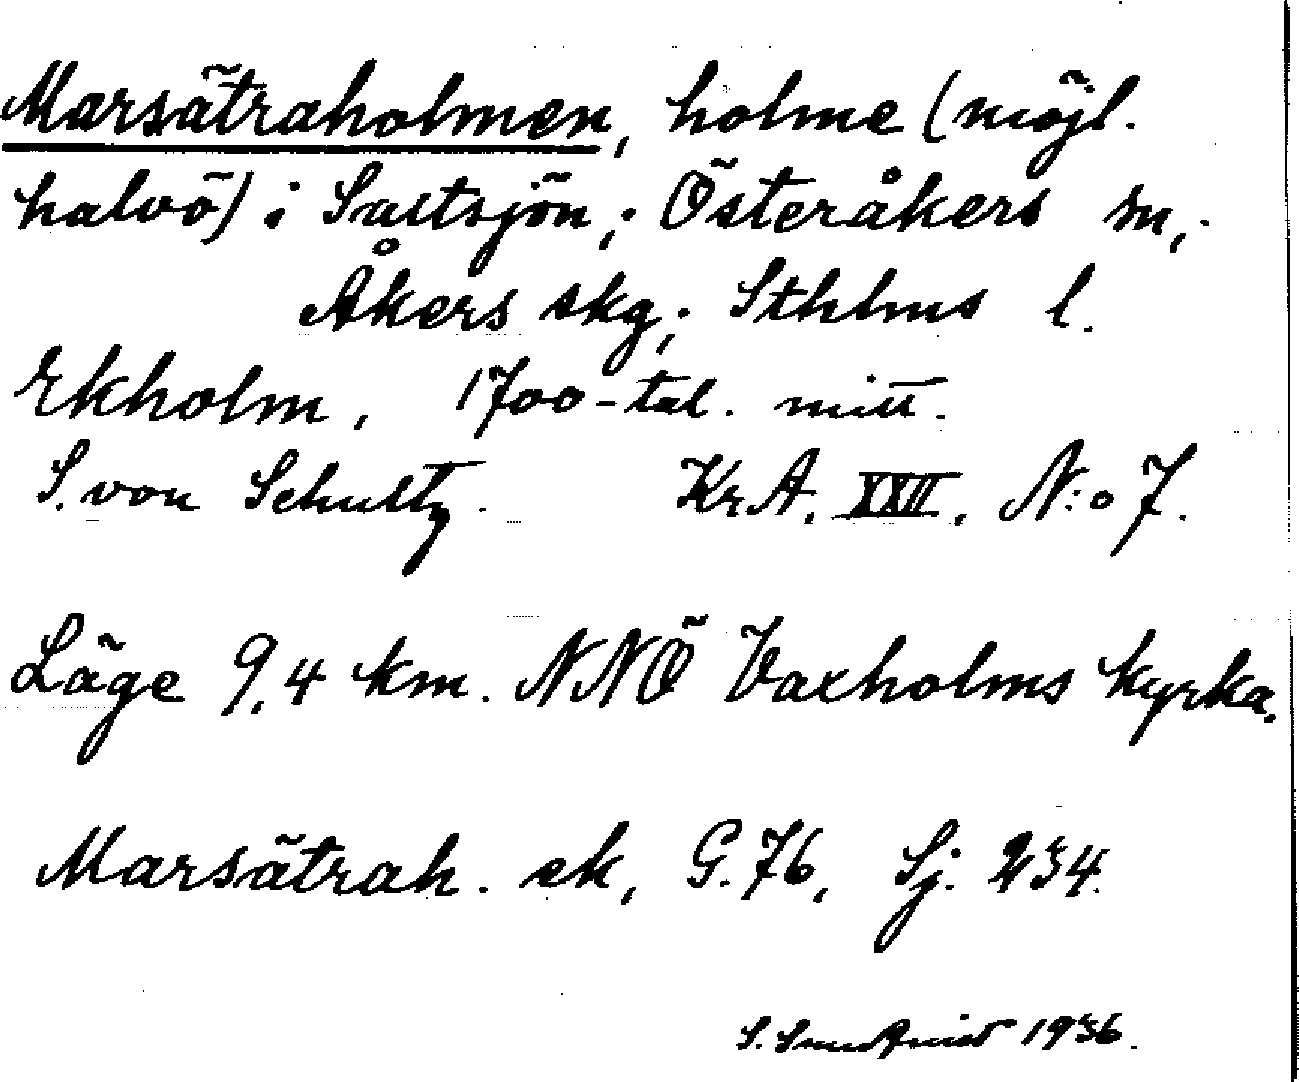 Marsätraholmen, holme (möjl.
halvö) i Saltsjön; Österåkers sn,
Åkers skg; Sthlms l.
Ekholm, 1700-tal. mitt.
S. von Schultz. Kr.A. XXII, N:o 7.
Läge 9,4 km. NNÖ Vaxholms kyrka.
Marsätrah. ek, G. 76, Sj. 234.
S. Sundqvist 1936.